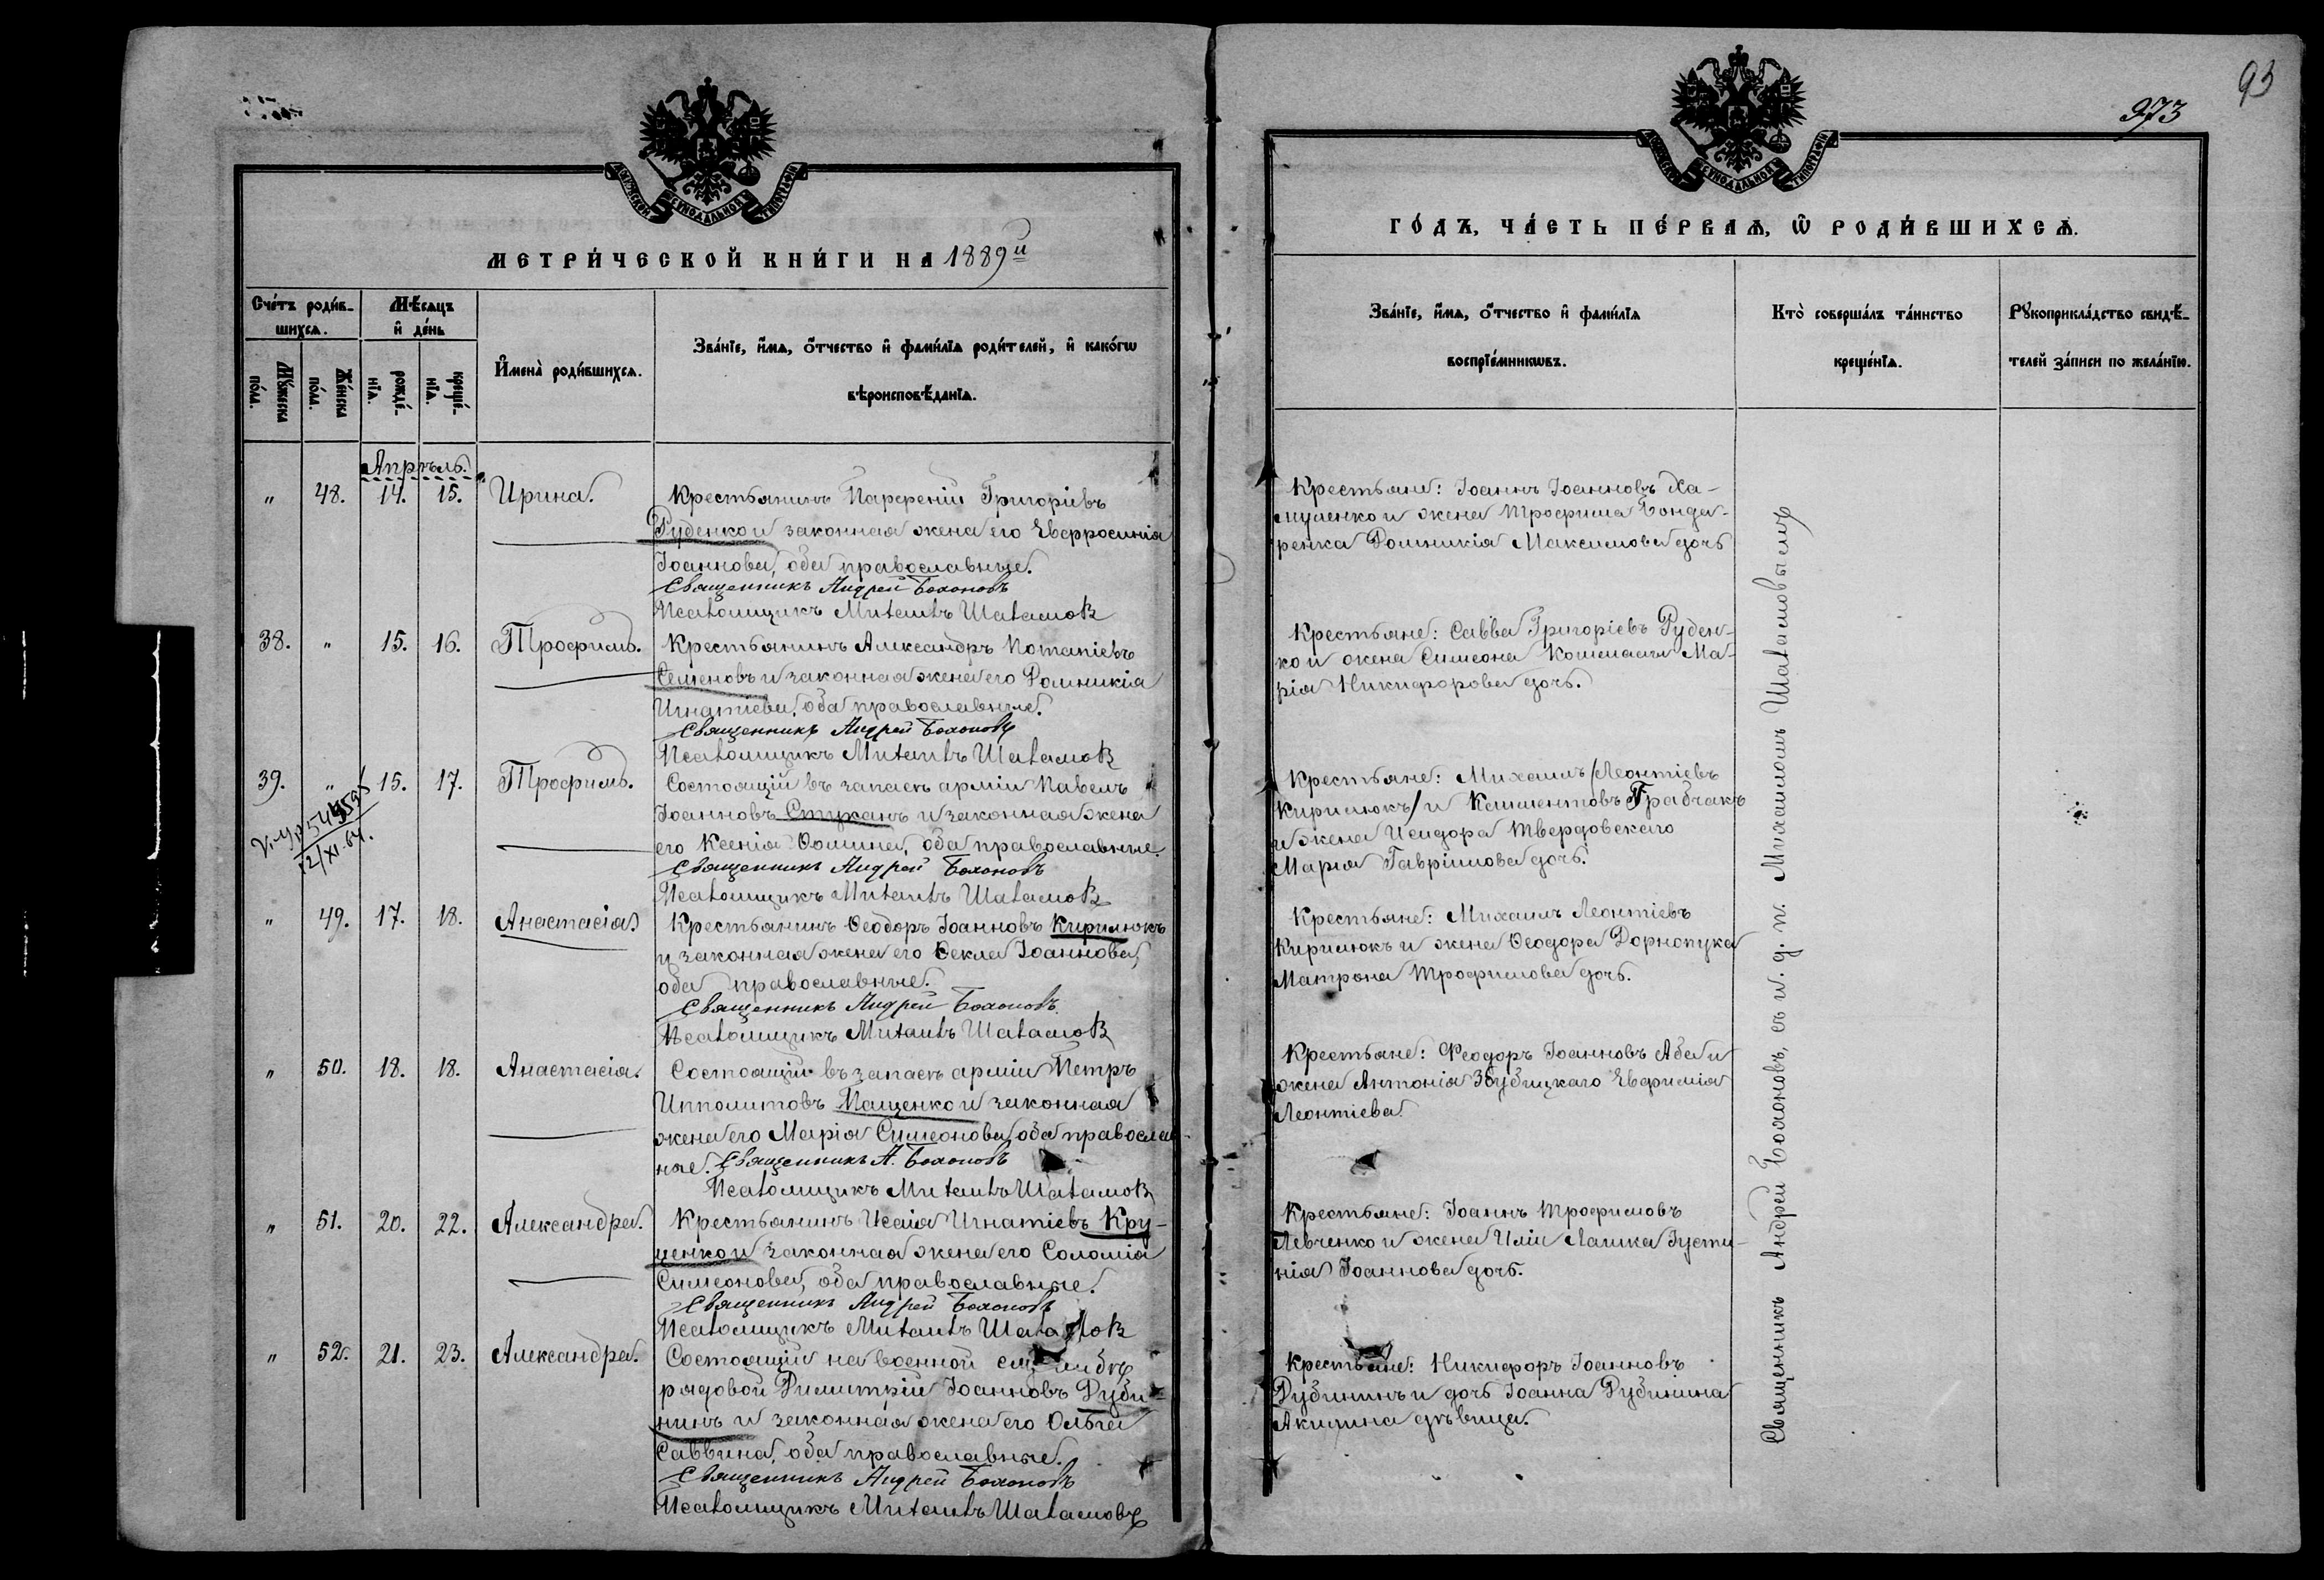 93
973
МЕТРИ́ЧЕСКОЙ КНИ́ГИ НА 1889й
Сче́тъ роди́в-
шихся.
Му́жеска
по́ла.
Же́нска
по́ла.
Мѣ́сяцъ
и҆ де́нь
рожде́-
нїя.
креще́-
нїя.
И҆мена̀ роди́вшихся.
Зва́нїе, и҆́мя, ѻ҆́тчество и҆ фами́лїя роди́телей, и҆ како́гѡ
вѣроисповѣ́данїя.
Апрѣль.
" 48. 14. 15. Ирина.
Крестьянинъ Парфеній Григоріевъ
Руденко и законная жена его Евфросинія
Іоаннова, оба православные.
Священникъ Андрей Бохоновъ
Псаломщикъ Шаталовъ
38. " 15. 16. Трофимъ.
Крестьянинъ Александръ Потапіевъ
Семеновъ и законная жена его Домникія
Игнатіева, оба православные.
Священникъ Андрей Бохоновъ
Псаломщикъ Шаталовъ
39. " 15. 17. Трофимъ.
12/XI-64.
Состоящій въ запасѣ арміи Павелъ
Іоанновъ Стуканъ и законная жена
его Ксенія Ѳомина, оба православные.
Священникъ Андрей Бохоновъ
Псаломщикъ Шаталовъ
" 49. 17. 18. Анастасія
Крестьянинъ Ѳеодоръ Іоанновъ Кирилюкъ
и законная жена его Ѳекла Іоаннова,
оба православные.
Священникъ Андрей Бохоновъ
Псаломщикъ Шаталовъ
" 50. 18. 18. Анастасія.
Состоящій въ запасѣ арміи Петръ
Ипполитовъ Пащенко и законная
жена его Марія Симеонова, оба православ-
ные. Священникъ А. Бохоновъ
Псаломщикъ Шаталовъ
" 51. 20. 22. Александра.
Крестьянинъ Исаія Игнатіевъ Кру-
ценко и законная жена его Соломія
Симеонова, оба православные.
Священникъ Андрей Бохоновъ
Псаломщикъ Шаталовъ
" 52. 21. 23. Александра.
Состоящій на военной службѣ
рядовой Димитрій Іоанновъ Дуби-
нинъ и законная жена его Ольга
Саввина, оба православные.
Священникъ Андрей Бохоновъ
Псаломщикъ Шаталовъ
ГО́ДЪ, ЧА́СТЬ ПЕ́РВАЯ, Ѡ҆ РОДИ́ВШИХСЯ.
Зва́нїе, и҆́мя, ѻ҆́тчество и҆ фами́лїя
воспрїе́мникѡвъ.
Кто̀ соверша́лъ та́инство
креще́нїя.
Рꙋкоприкла́дство свидѣ́-
телей за́писи по жела́нїю.
Крестьяне: Іоаннъ Іоанновъ Ха-
муленко и жена Трофима Бонда-
ренка Домникія Максимова дочь
Крестьяне: Савва Григоріевъ Руден-
ко и жена Симеона Ма-
рія Никифорова дочь.
Крестьяне: Михаилъ /Леонтіевъ
Кирилюкъ/ и Грабчакъ
и жена Исидора Твердовскаго
Марія Гавріилова дочь.
Крестьяне: Михаилъ Леонтіевъ
Кирилюкъ и жена Ѳеодора Дорнопука
Матрона Трофимова дочь.
Крестьяне: Ѳеодоръ Іоанновъ Аба и
жена Антонія Збубицкаго Евфимія
Леонтіева.
Крестьяне: Іоаннъ Трофимовъ
Левченко и жена Иліи Лашка Іусти-
нія Іоаннова дочь.
Крестьяне: Никифоръ Іоанновъ
Дубининъ и дочь Іоанна Дубинина
Акилина дѣвица.
Священникъ Андрей Бохоновъ, съ и. д. п. Михаиломъ Шаталовымъ